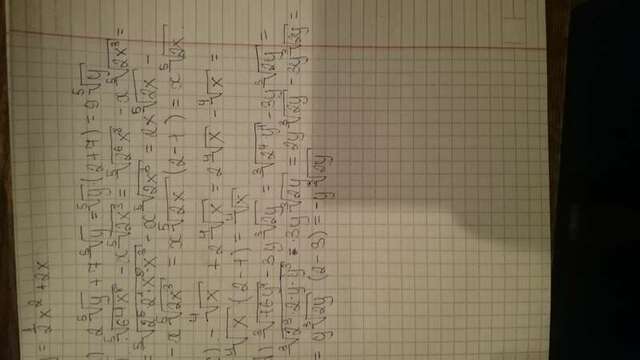 y = 1/2 x² + 2x
) 2 ⁵√y + 7 ⁵√y = ⁵√y (2+7) = 9 ⁵√y
⁵√64x⁸ - x ⁵√2x³ = ⁵√2⁶x⁸ - x ⁵√2x³ =
= ⁵√2⁵·2¹·x⁵·x³ - x ⁵√2x³ = 2x ⁵√2x -
- x ⁵√2x³ = x ⁵√2x (2-1) = x ⁵√2x
) - ⁴√x + 2 ⁴√x = 2 ⁴√x - ⁴√x =
⁴√x (2-1) = ⁴√x
) ³√16y⁴ - 3y ³√2y = ³√2⁴y⁴ - 3y ³√2y =
³√2³·2·y·y³ - 3y ³√2y = 2y ³√2y - 3y ³√2y =
= y ³√2y (2-3) = -y ³√2y